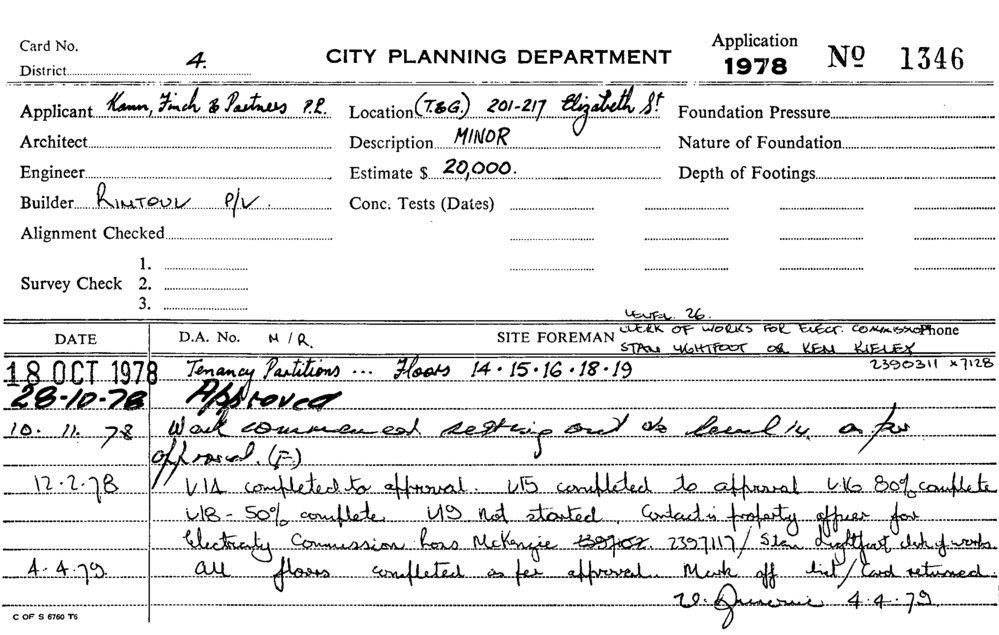 Card No.
District 4. CITY PLANNING DEPARTMENT Application 1978 Nº 1346
Applicant Kann, Finch & Partners P.L. Location (T.&G.) 201-217 Elizabeth St Foundation Pressure
Architect Description MINOR Nature of Foundation
Engineer Estimate $ 20,000. Depth of Footings
Builder RINTOUL P/L. Conc. Tests (Dates)
Alignment Checked
1.
Survey Check 2.
3.
LEVEL 26.
DATE D.A. No. M/R. SITE FOREMAN CLERK OF WORKS FOR ELECT. COMMISSION Phone
STAN LIGHTFOOT OR KEN KIELEY
18 OCT 1978 Tenancy Partitions ... Floors 14.15.16.18.19 2390311 x7128
28-10-78 Approved
10.11.78 Work commenced setting out to level 14. as per
approval. (F)
12.2.78 L/14 completed to approval. L/15 completed to approval L/16 80% complete
L/18 - 50% complete L/19 Not started. Contact is property officer for
Electricity Commission Ross McKenzie 2397117/ Stan Lightfoot clerk of works.
4.4.79. All floors completed as per approval. Mark off list/Card returned.
4.4.79.
C OF S 6760 T6